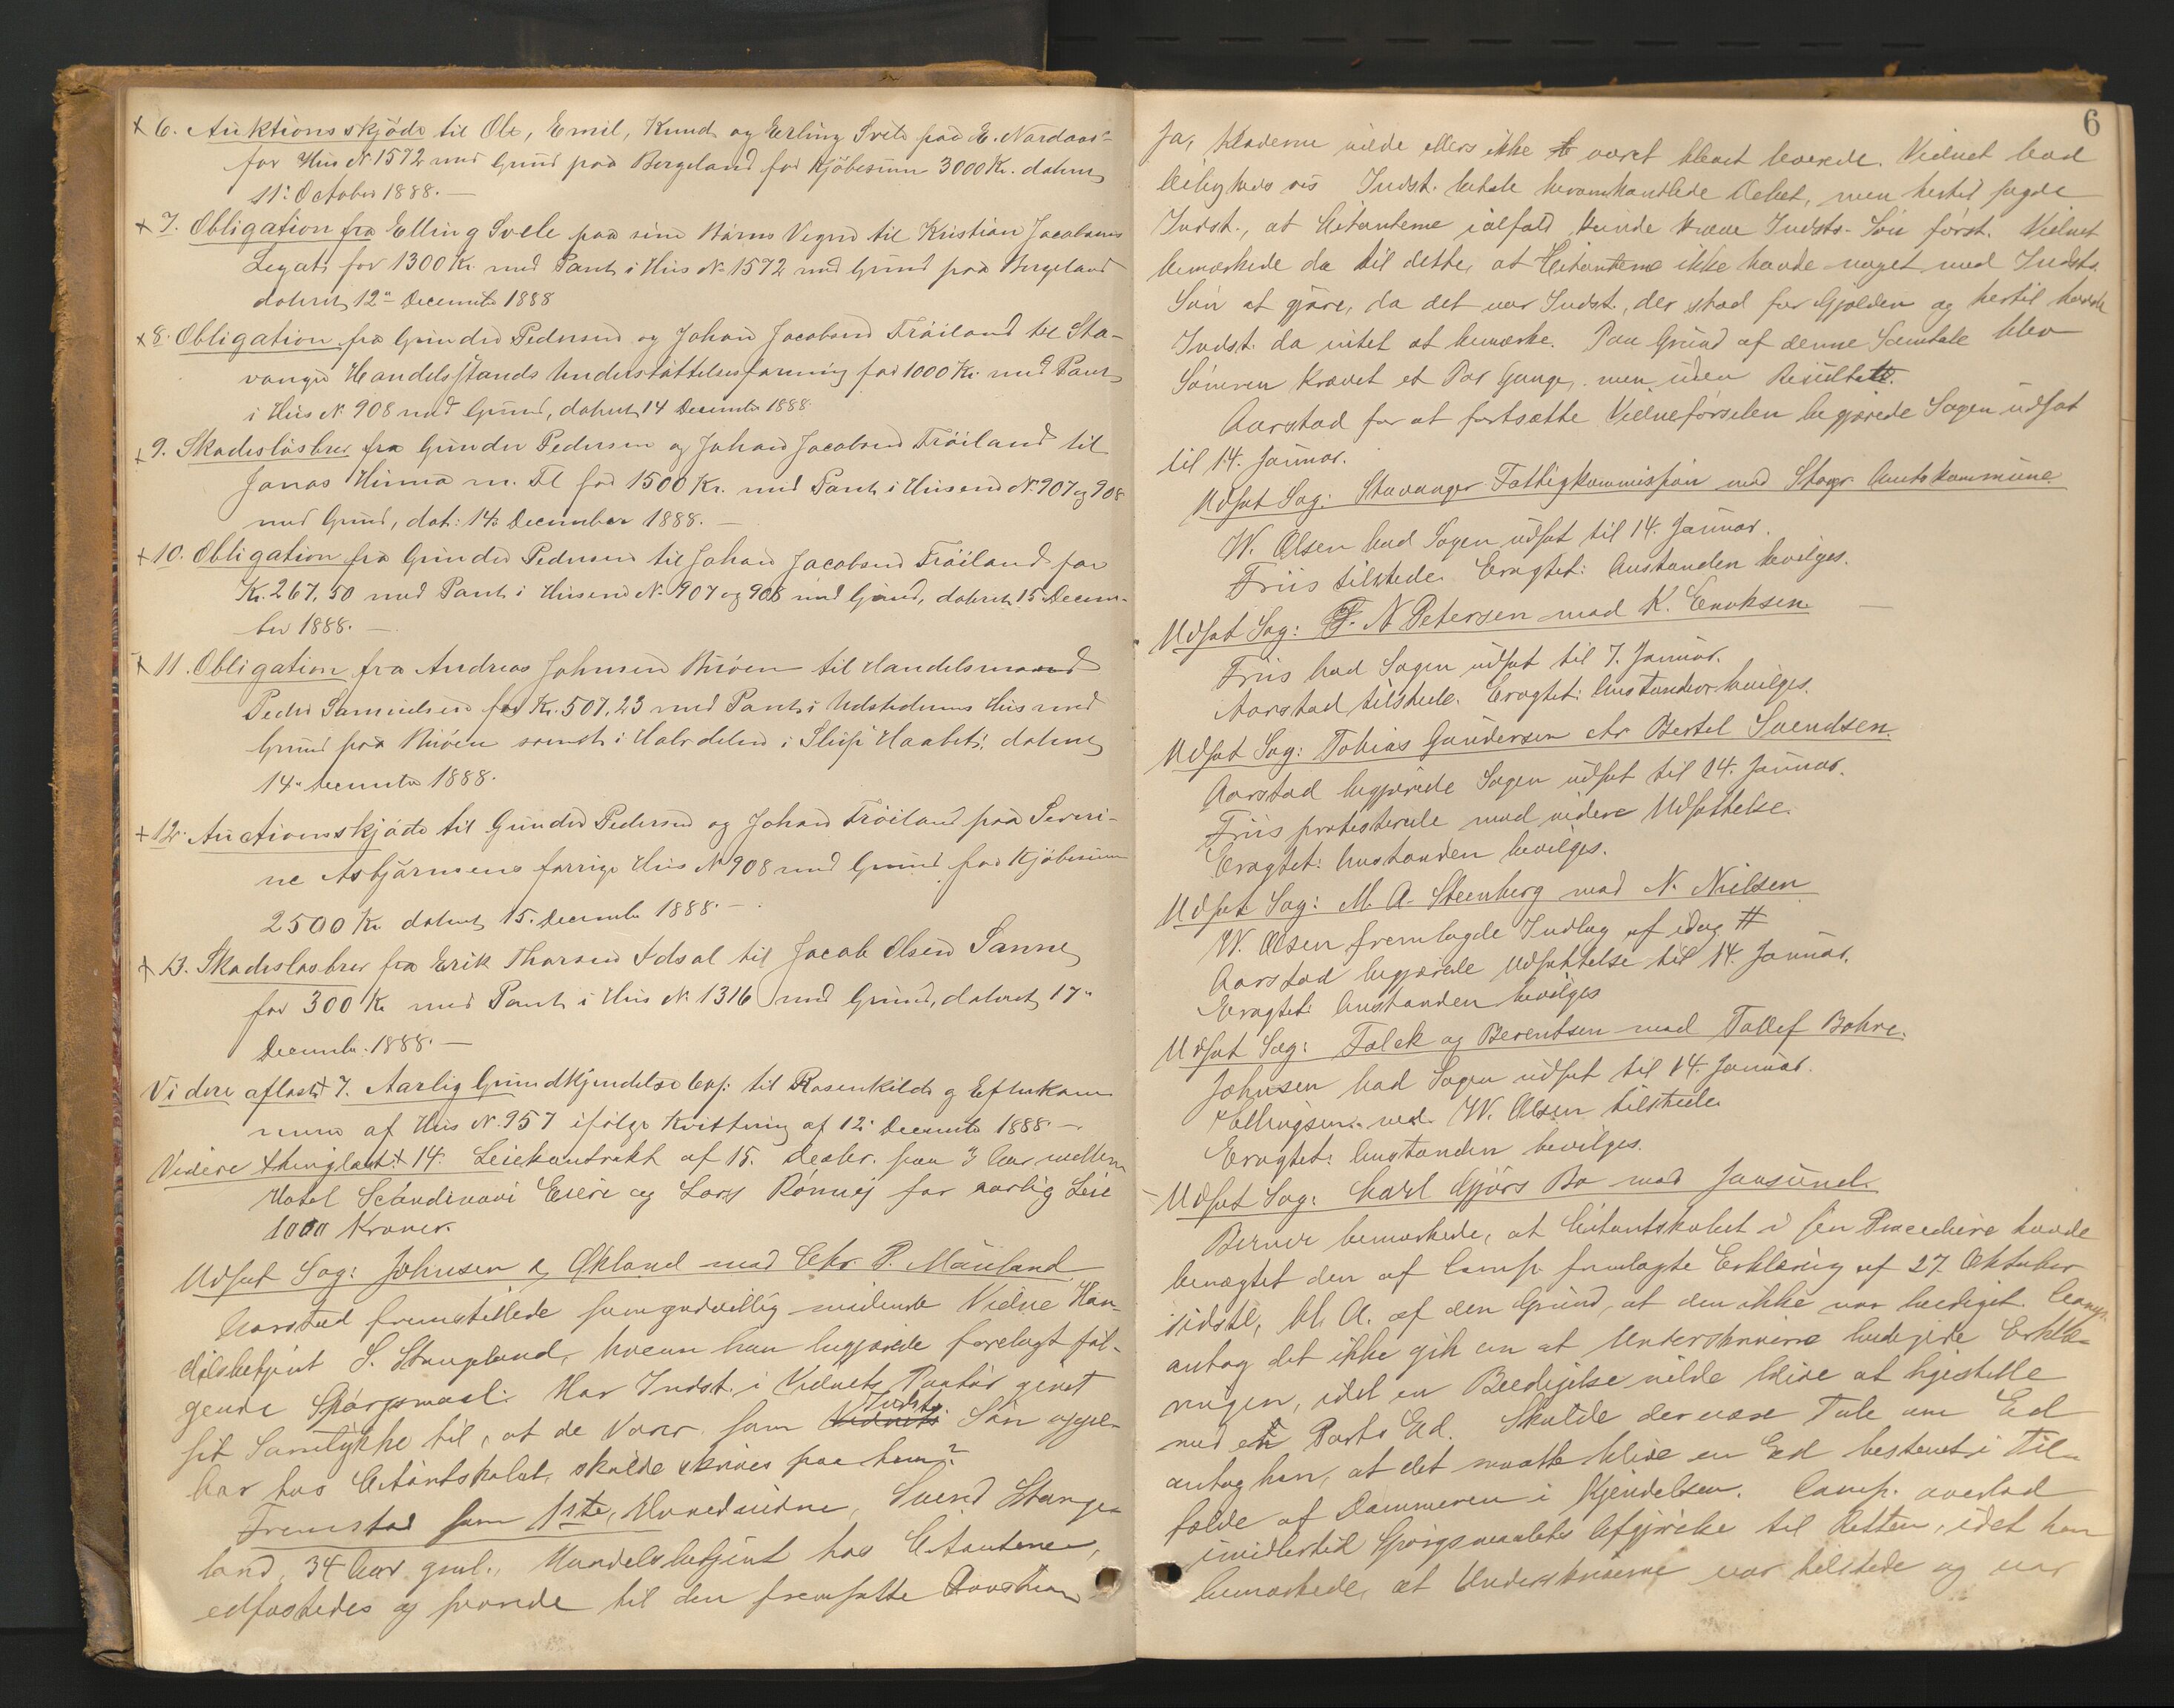 + 6. Auktionsskjøde til Ole, Emil, Knud og Erling Svele paa E. Nordaas'
for Hus No 1572 med Grund paa Bergeland for Kjøbesum 3000 Kr. datert
11' October 1888. —
+ 7. Obligation fra Elling Svele paa sine Børns Vegne til Kristian Jacobsens
Legat for 1300 Kr. med Pant i Hus No 1572 med Grund paa Bergeland
datert 12" December 1888
+ 8. Obligation fra Gunder Pedersen og Johan Jacobsen Trøiland til Sta-
vanger Handelsstands Understøttelsesforening for 1000 Kr. med Pant
i Hus No 908 med Grund, datert 14 December 1888.
+ 9. Skadesløsbrev fra Gunder Pedersen og Johan Jacobsen Trøiland til
Jonas Hinna m. Fl for 1500 Kr. med Pant i Husene No 907 og 908
med Grund, dat: 14: December 1888. —
+ 10. Obligation fra Gunder Pedersen til Johan Jacobsen Trøiland for
Kr. 267,50 med Pant i Husene No 907 og 908 med Grund, datert 15 Decem-
ber 1888. —
+ 11. Obligation fra Andreas Johnsen Buøen til Handelsmand
Peder Samuelsen for Kr. 507,23 med Pant i Udstederens Hus med
Grund paa Buøen samt i Halvdelen i Slup Haabet: datert
14" December 1888.
+ 12. Auctionsskjøde til Gunder Pedersen og Johan Trøiland paa Severi-
ne Asbjørnsens forrige Hus No 908 med Grund for Kjøbesum
2500 Kr datert 15. December 1888. —
+ 13. Skadesløsbrev fra Erik Thorsen Idsal til Jacob Olsen Sanne
for 300 Kr med Pant i Hus No 1316 med Grund, datert 17"
December 1888. —
Videre aflæst + 7. Aarlig Grundkjendelse til Rosenkilde og Efterkom
mere af Hus No. 957 ifølge Kvittering af 12' December 1888 —
Videre thinglæst: + 14. Leiekontrakt af 15. Decbr. paa 3 Aar mellem
Hotel Scandinavi Eiere og Lars Rønnej for aarlig Leie
1000 Kroner.
Udsat Sag: Johnsen & Økland mod Chr. P. Mauland
Aarstad fremstillede som godvillig mødende Vidne Han-
delsbetjent S. Stangeland, hvem han begjærede forelagt føl-
gende Spørgsmaal: Har Indst. i Vidnets Paahør givet
sit Samtykke til, at de Varer som Vidnets Indsts. Søn oppe-
bar hos Citantskabet, skulde skrives paa ham?
Fremstod som 1ste Hovedvidne, Svend Stange-
land, 34 Aar gml., Handelsbetjent hos Citanterne,
edfæstedes og svarede til den fremsatte Qvæstion
6
Ja, Kladerne vilde ellers ikke være blevet leverede. Vidnet bad
leilighedsvis Indst. betale heromhandlede Beløb, men hertil sagde
Indst., at Citanterne ialfald kunde kræve Indsts. Søn først. Vidnet
bemærkede da til dette, at Citanterne ikke havde noget med Indsts.
Søn at gjøre, da det var Indst., der stod for Gjælden og hertil havde
Indst. da intet at bemærke. Paa Grund af denne Samtale blev
Sønnen krævet et Par Gange, men uden Resultat.
Aarstad for at fortsætte Vidneførselen begjærede Sagen udsat
til 14. Januar.
Udsat Sag: Stavanger Fattigkommission mod Stavgr. Amtskommune.
W. Olsen bad Sagen udsat til 14. Januar.
Friis tilstede. Eragtet: Anstanden bevilges.
Udsat Sag: F. N Petersen mod K. Enoksen.
Friis bad Sagen udsat til 7. Januar.
Aarstad tilstede. Eragtet: Anstanden bevilges.
Udsat Sag: Tobias Gundersen ctr. Bertel Svendsen.
Aarstad begjærede Sagen udsat til 14. Januar.
Friis protesterede mod videre Udsættelse.
Eragtet: Anstanden bevilges.
Udsat Sag: M. A. Steenberg mod N. Nielsen
W. Olsen fremlagde Indlæg af idag #
Aarstad begjærede Udsættelse til 14. Januar.
Eragtet: Anstanden bevilges
Udsat Sag: Falck og Berentsen mod Tollef Bohre.
Johnsen bad Sagen udsat til 14. Januar.
Ellingsen ved W. Olsen tilstede
Eragtet: Anstanden bevilges.
Udsat Sag: Carl Gjørs Bo mod Jonsund.
Berner bemærkede, at Citantskabet i sin Procedure havde
benægtet den af Comp. fremlagte Erklæring af 27. Oktober
sidstl., bl. A. af den Grund, at den ikke var beediget. Comp.
antog det ikke gik an at Underskriverne beedigede Erklæ-
ringen, idet en Beedigelse vilde blive at ligestille
med en Parts Ed. Skulde der være Tale om Ed
antog han, at det maatte blive en Ed bestemt i Til-
fælde af Dommeren i Kjendelsen. Comp. overlod
imidlertid Spørgsmaalets Afgjørelse til Retten, idet han
bemærkede, at Underskriverne var tilstede og var